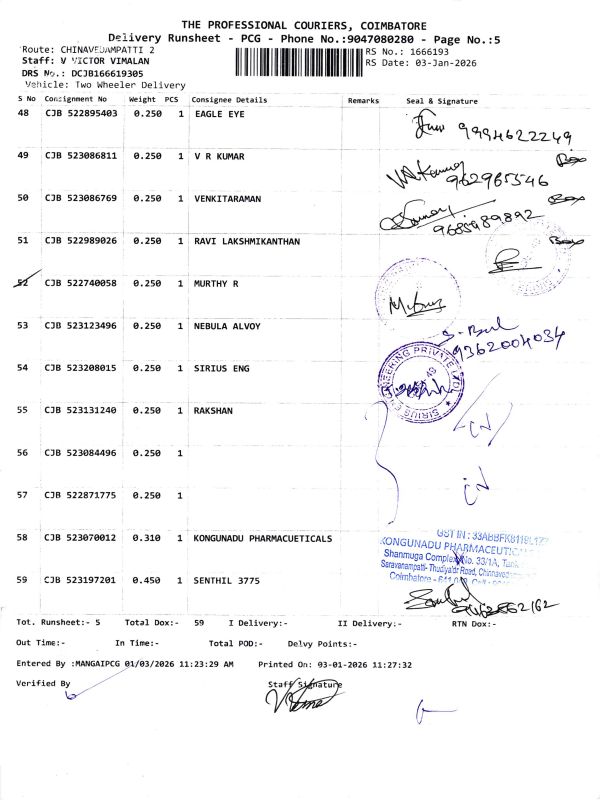 THE PROFESSIONAL COURIERS, COIMBATORE
Delivery Runsheet - PCG - Phone No.:9047080280 - Page No.:5
Route: CHINAVEDAMPATTI 2 RS No.: 1666193
Staff: V VICTOR VIMALAN RS Date: 03-Jan-2026
DRS No.: DCJB166619305
Vehicle: Two Wheeler Delivery
S No Consignment No Weight PCS Consignee Details Remarks Seal & Signature
48 CJB 522895403 0.250 1 EAGLE EYE
9994622249
49 CJB 523086811 0.250 1 V R KUMAR
50 CJB 523086769 0.250 1 VENKITARAMAN
9685989892
51 CJB 522989026 0.250 1 RAVI LAKSHMIKANTHAN
52 CJB 522740058 0.250 1 MURTHY R
53 CJB 523123496 0.250 1 NEBULA ALVOY
9362004034
54 CJB 523208015 0.250 1 SIRIUS ENG
SIRIUS ENGINEERING PRIVATE LTD
55 CJB 523131240 0.250 1 RAKSHAN
56 CJB 523084496 0.250 1
57 CJB 522871775 0.250 1
58 CJB 523070012 0.310 1 KONGUNADU PHARMACUETICALS
GST IN : 33ABBFK8119L1ZZ
KONGUNADU PHARMACEUTIC
Shanmuga Complex No. 33/1A,
Saravanampatti- Thudiyalur Road, Chinnaved
Coimbatore - 641 0
59 CJB 523197201 0.450 1 SENTHIL 3775
Tot. Runsheet:- 5 Total Dox:- 59 I Delivery:- II Delivery:- RTN Dox:-
Out Time:- In Time:- Total POD:- Delvy Points:-
Entered By :MANGAIPCG 01/03/2026 11:23:29 AM Printed On: 03-01-2026 11:27:32
Verified By Staff Signature